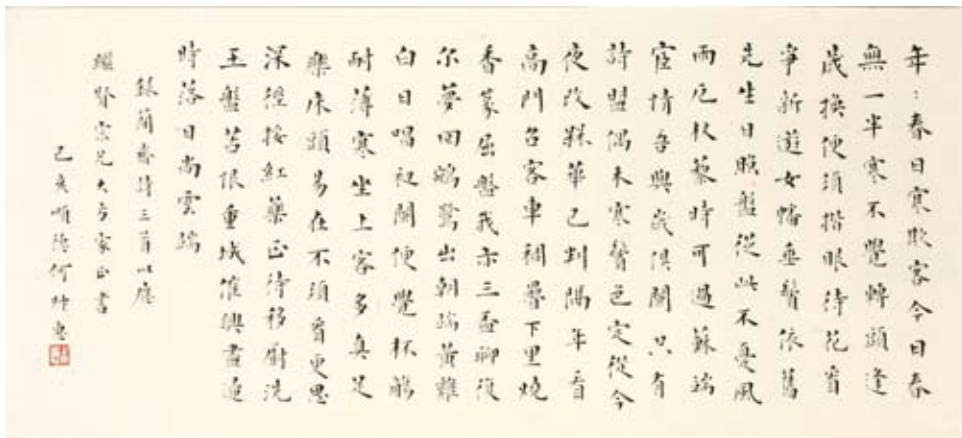 年〻春日寒欺客今日春
無一半寒不覺轉頭逢
歲換便須揩眼待花看
爭新遊女幡垂鬢依舊
先生日照盤從此不憂風
雨厄杖藜時可過蘇端
宦情吾與歲俱闌只有
詩盟偶未寒鬢色定從今
夜改槑華已判隔年看
高門召客車稠疊下里燒
香篆屈盤我亦三盃聊復
尔夢回鵷鷺出朝端黃雞
白日唱初闌便覺杯觴
耐薄寒坐上客多真足
樂床頭易在不須看更思
深徑挼紅藥正待移廚洗
玉盤苦恨重城催興盡
時落日尚雲端
錄簡齋詩三首以應
宗兄大方家正書
己亥順德何